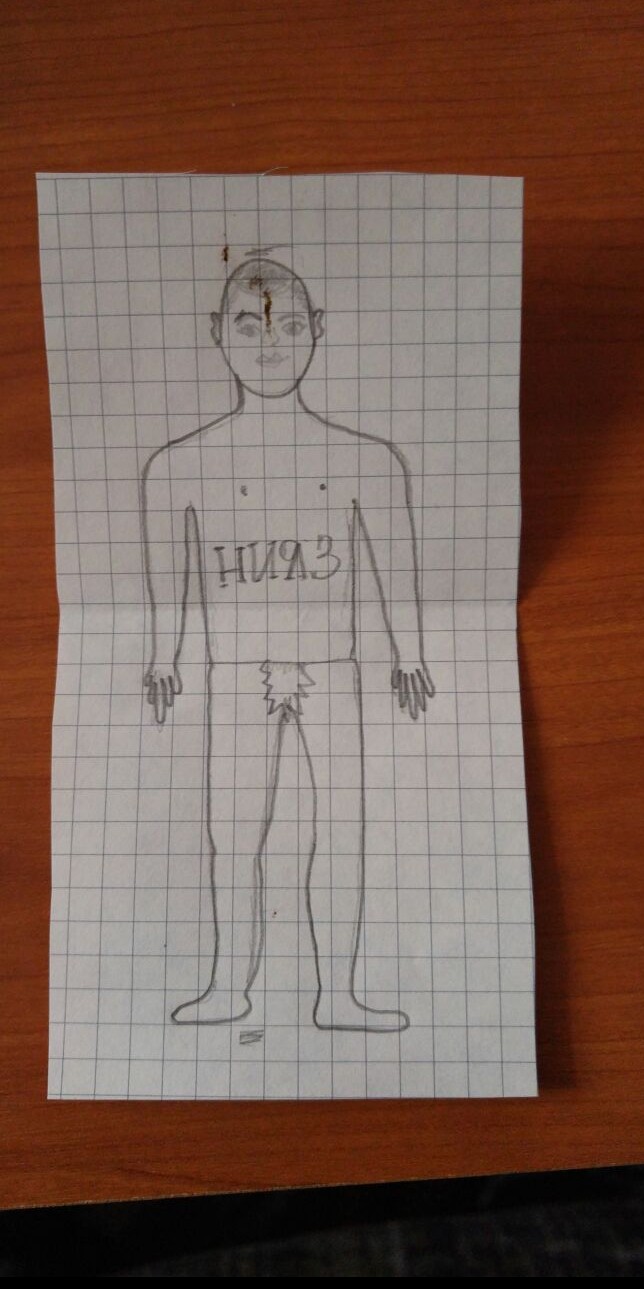 НИЯЗ